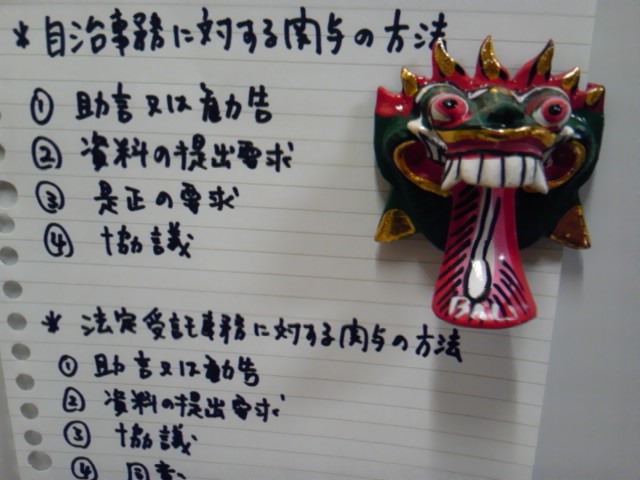 * 自治事務に対する関与の方法
① 助言又は勧告
② 資料の提出要求
③ 是正の要求
④ 協議
BALI
* 法定受託事務に対する関与の方法
① 助言又は勧告
② 資料の提出要求
③ 協議
④ 同意